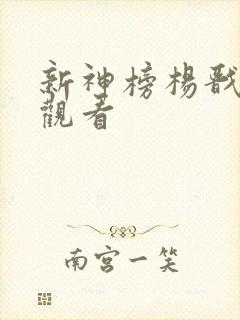 新神榜楊戩
觀看
南宮一笑